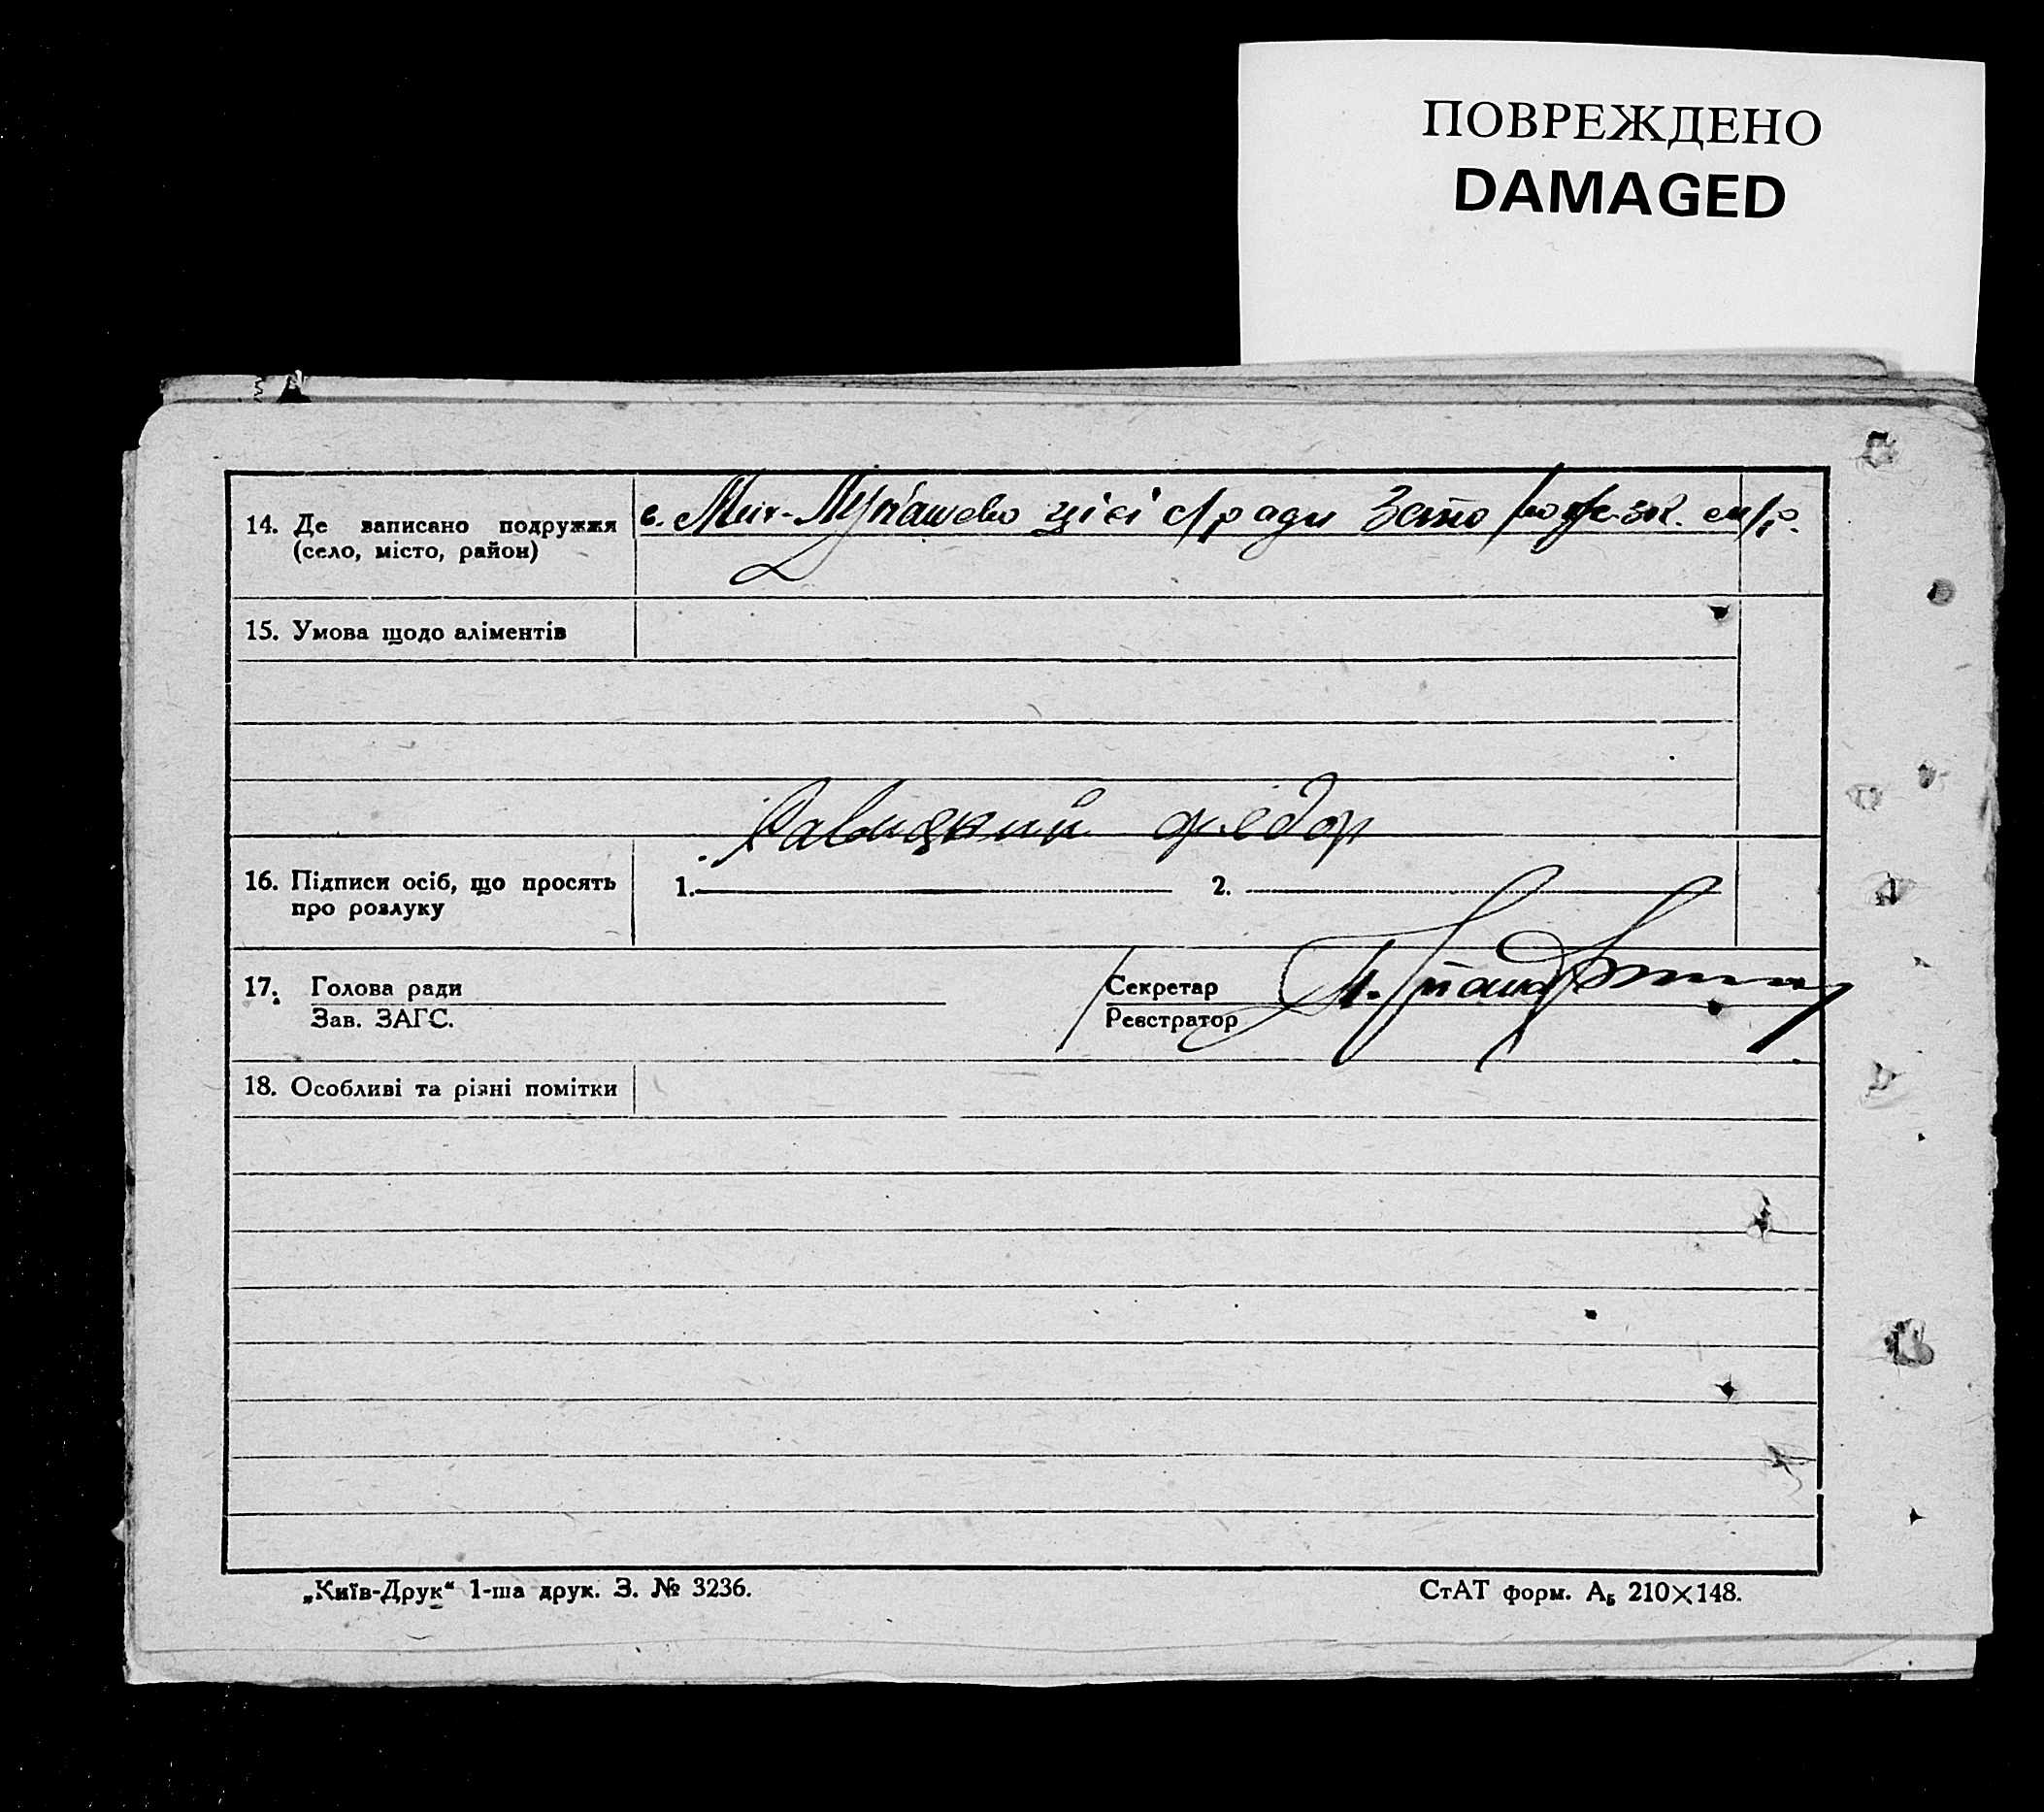 ПОВРЕЖДЕНО
DAMAGED
14. Де записано подружжя
(село, місто, район)
цієі с/ради
15. Умова щодо аліментів
федор
16. Підписи осіб, що просять
про розлуку
1.
2.
17. Голова ради
Зав. ЗАГС.
Секретар
Реєстратор
18. Особливі та різні помітки
„Київ-Друк“ 1-ша друк. З. № 3236.
СтАТ форм. А₅ 210×148.